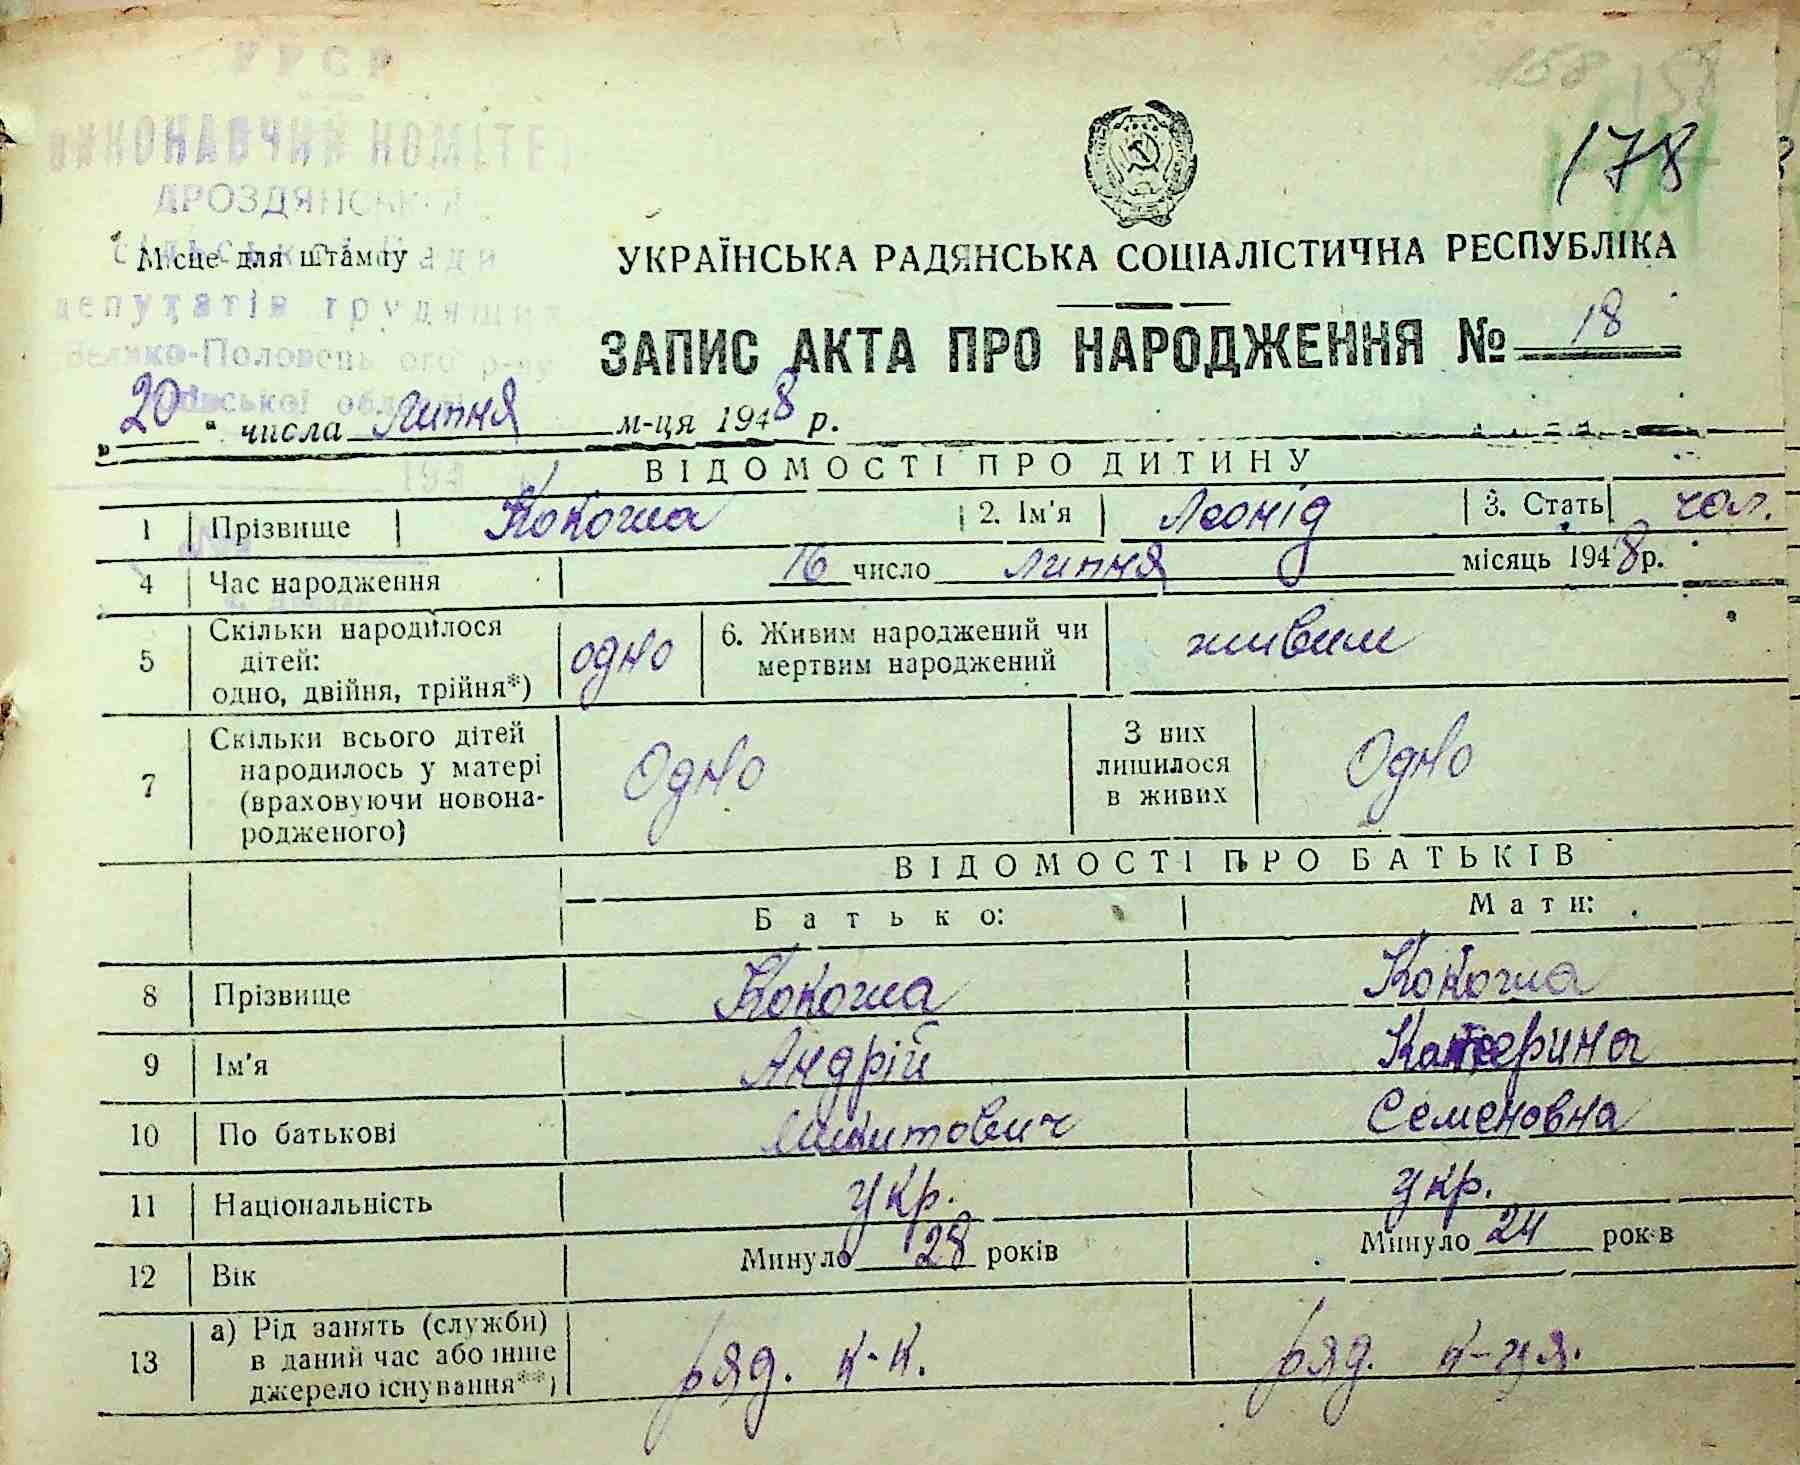 УРСР
158
158
ВИКОНАВЧИЙ КОМІТЕТ
178
ДРОЗДЯНСЬКОЇ
сільської Ради
Місце для штампу
УКРАЇНСЬКА РАДЯНСЬКА СОЦІАЛІСТИЧНА РЕСПУБЛІКА
депутатів трудящих
Велико-Половець ого р-ну
ЗАПИС АКТА ПРО НАРОДЖЕННЯ № 18
ської області
„20“ числа Липня м-ця 1948 р.
194
ВІДОМОСТІ ПРО ДИТИНУ
1 Прізвище Кокоша 2. Ім'я Леонід 3. Стать чол.
4 Час народження 16 число Липня місяць 1948 р.
5 Скільки народилося дітей: одно, двійня, трійня*) одно 6. Живим народжений чи мертвим народжений живим
7 Скільки всього дітей народилось у матері (враховуючи новонародженого) Одно З них лишилося в живих Одно
ВІДОМОСТІ ПРО БАТЬКІВ
Батько: Мати:
8 Прізвище Кокоша Кокоша
9 Ім'я Андрій Катерина
10 По батькові Микитович Семеновна
11 Національність Укр. Укр.
12 Вік Минуло 28 років Минуло 24 рок в
13 а) Рід занять (служби) в даний час або інше джерело існування**) ряд. к-к. ряд. к-ця.